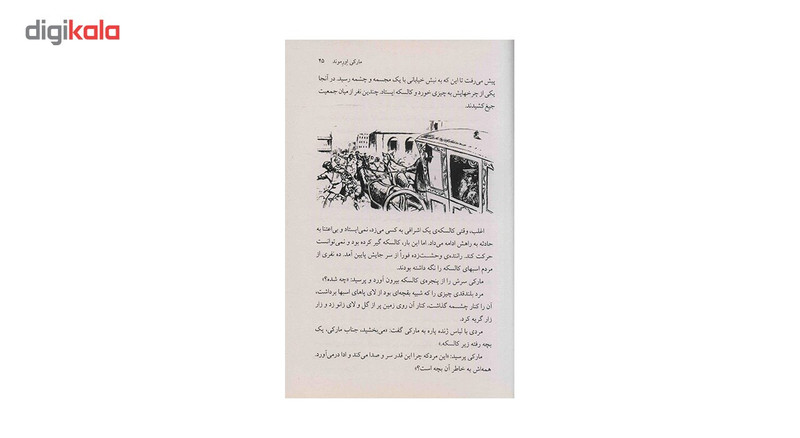 digikala
مارکی اِورِموند ۴۵
پیش می‌رفت تا این که به نبش خیابانی با یک مجسمه و چشمه رسید. در آنجا
یکی از چرخهایش به چیزی خورد و کالسکه ایستاد. چندین نفر از میان جمعیت
جیغ کشیدند.
اغلب، وقتی کالسکه‌ی یک اشرافی به کسی می‌زد، نمی‌ایستاد و بی‌اعتنا به
حادثه به راهش ادامه می‌داد. اما این بار، کالسکه گیر کرده بود و نمی‌توانست
حرکت کند. راننده‌ی وحشت‌زده فوراً از سر جایش پایین آمد. ده نفری از
مردم اسبهای کالسکه را نگه داشته بودند.
مارکی سرش را از پنجره‌ی کالسکه بیرون آورد و پرسید: «چه شده؟»
مرد بلندقدی چیزی را که شبیه بقچه‌ای بود از لای پاهای اسبها برداشت،
آن را کنار چشمه گذاشت، کنار آن روی زمین پر از گل و لای زانو زد و زار
زار گریه کرد.
مردی با لباس ژنده پاره به مارکی گفت: «می‌بخشید، جناب مارکی، یک
بچه رفته زیر کالسکه.»
مارکی پرسید: «این مردکه چرا این قدر سر و صدا می‌کند و ادا درمی‌آورد.
همه‌اش به خاطر آن بچه است؟»